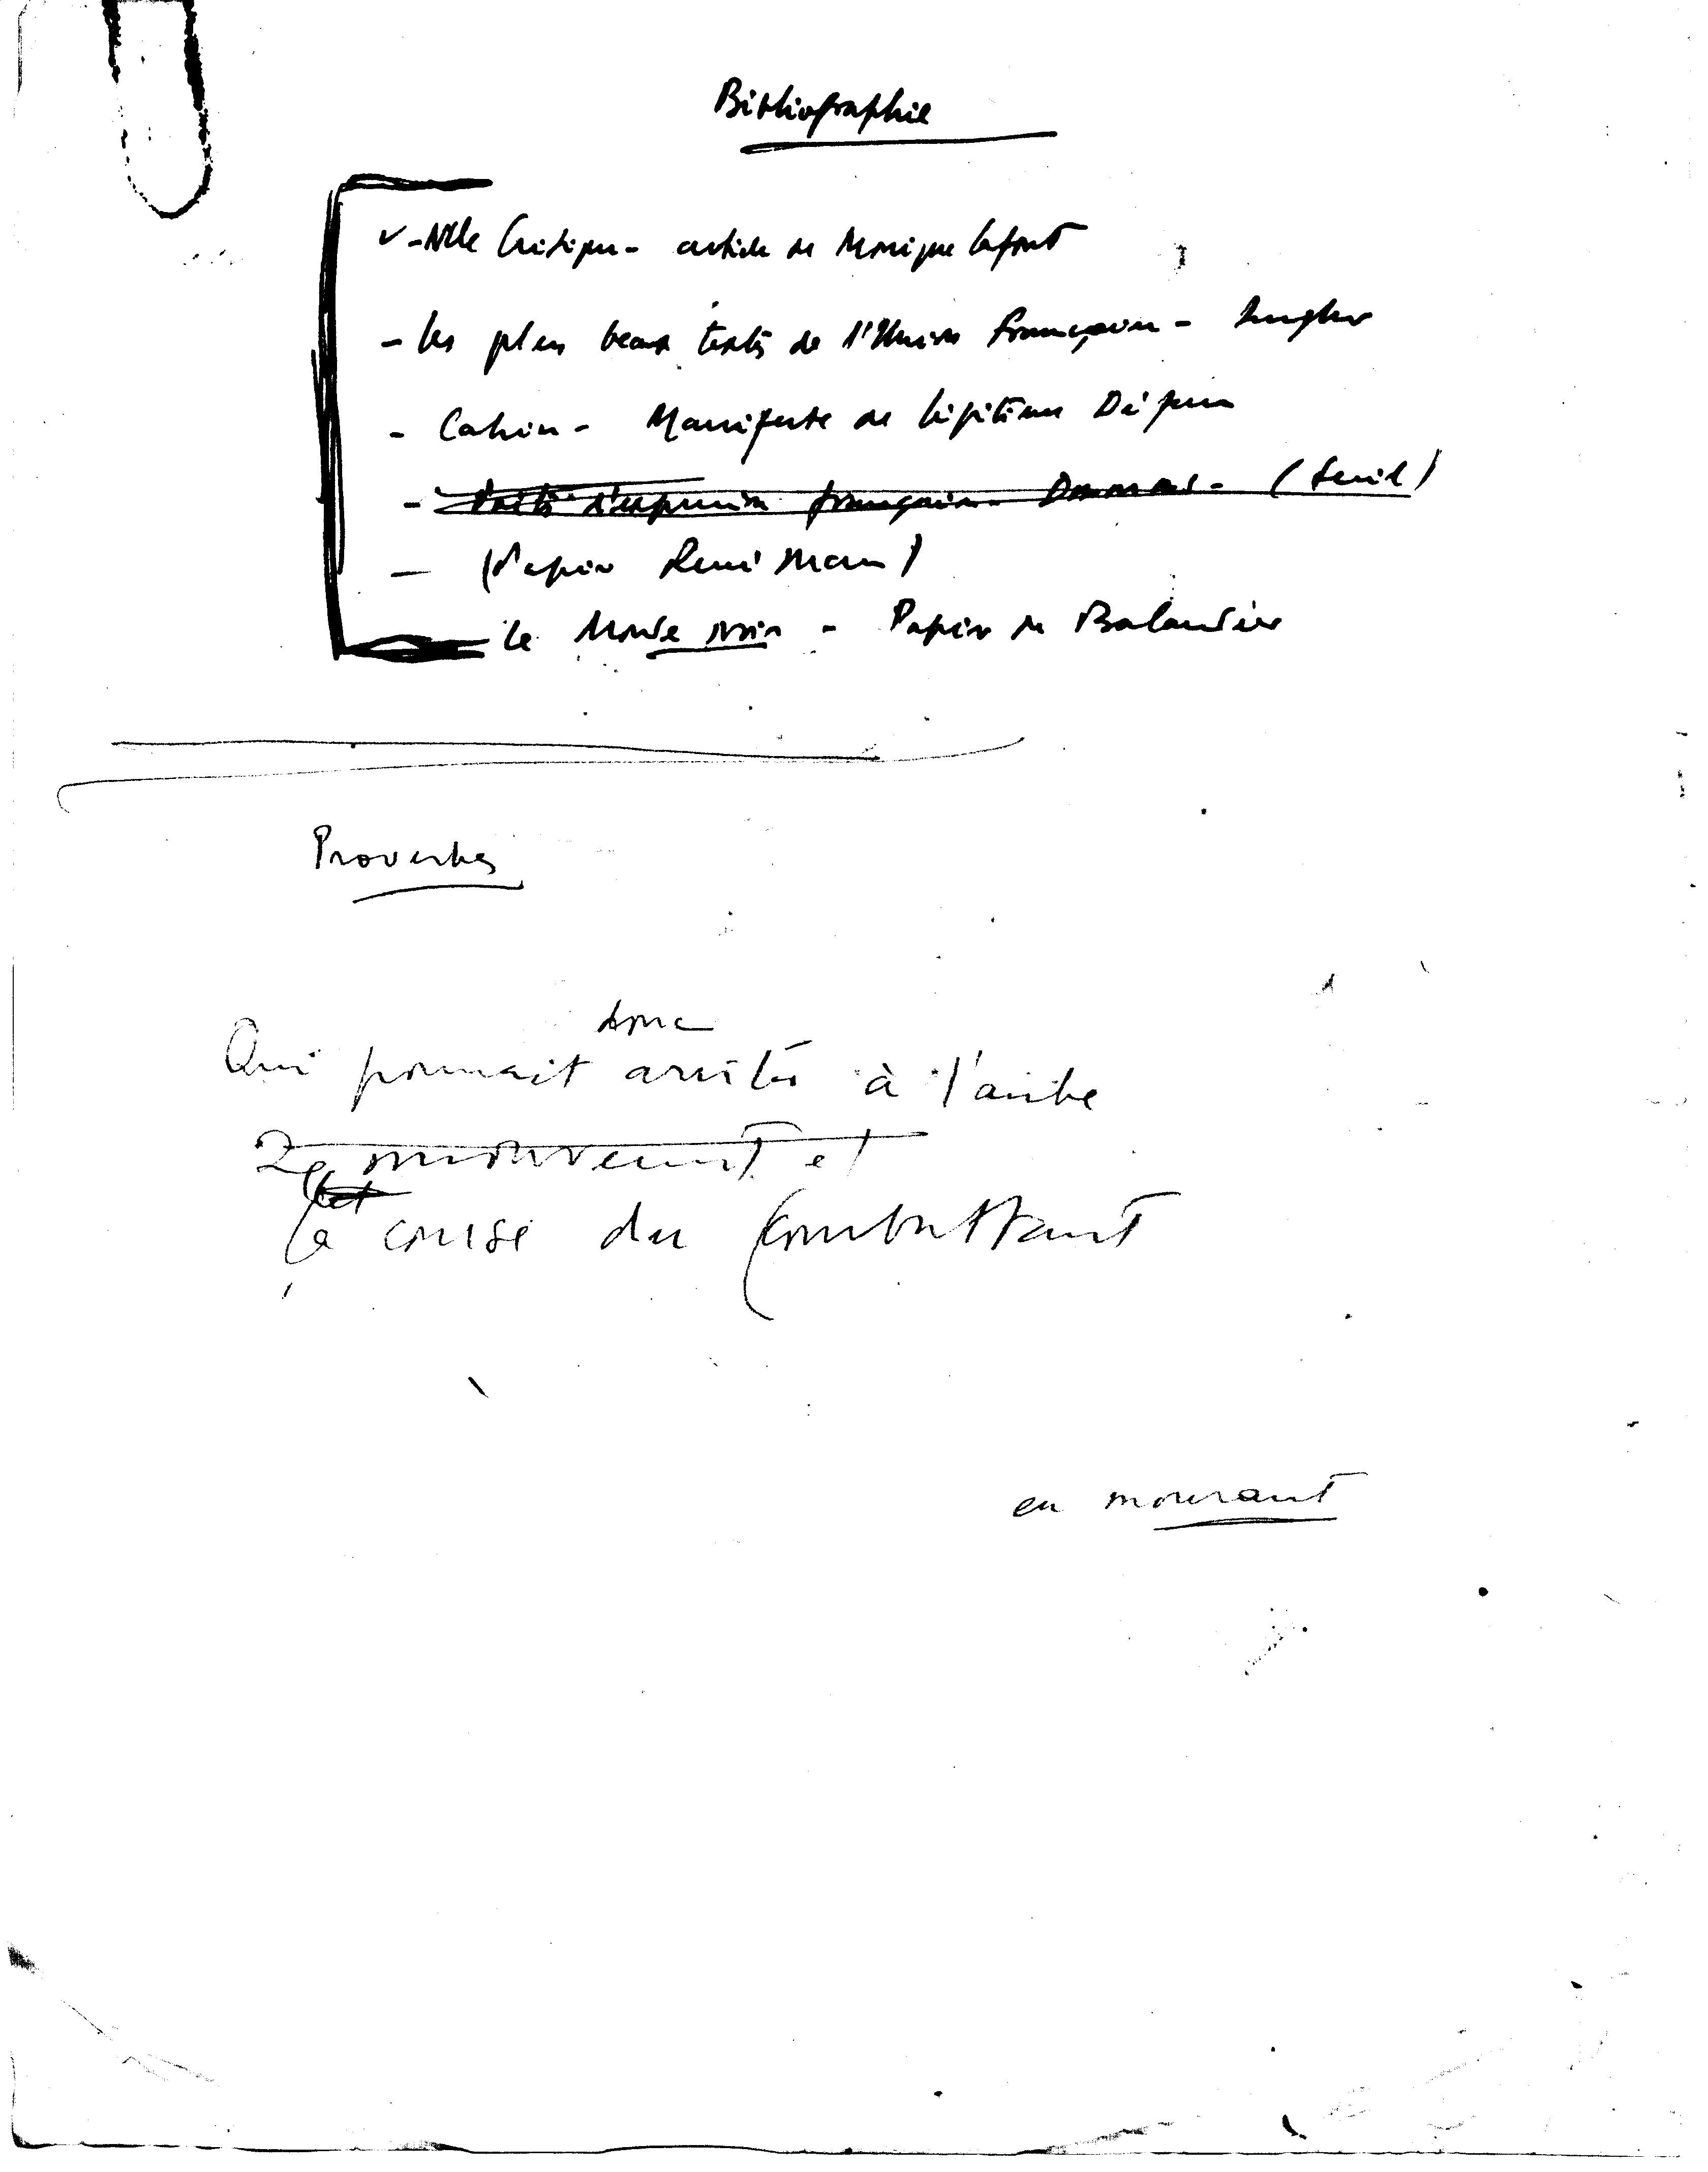 Bibliographie
- Nlle Critique - article de Monique Lafont
- Les plus beaux textes de l'Union Française -
- Cahier - Manifeste de Légitime Défense
- Poètes d'expression française - Damas - (Seuil)
- (Papier René Maran)
Le Monde noir - Papier de Balandier
Proverbes
donc
Qui pourrait arrêter à l'aube
Le mouvement et
la course du Combattant
en mourant